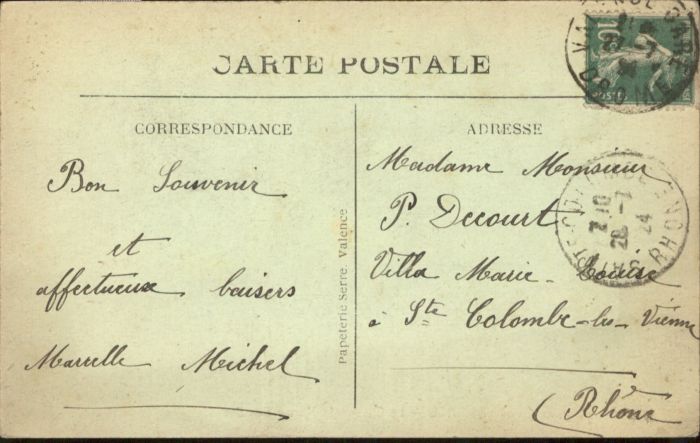 CARTE POSTALE
CORRESPONDANCE
Bon Souvenir
et
affectueux baisers
Marcelle Michel
Papeterie Serre. Valence
ADRESSE
Madame Monsieur
P. Decourt
Villa Marie-Louise
à Ste Colombe-les-Vienne
(Rhône
10
POSTES
GARE
DROME
27 -7
STE-COLOMBE
RHONE
28 -7
24